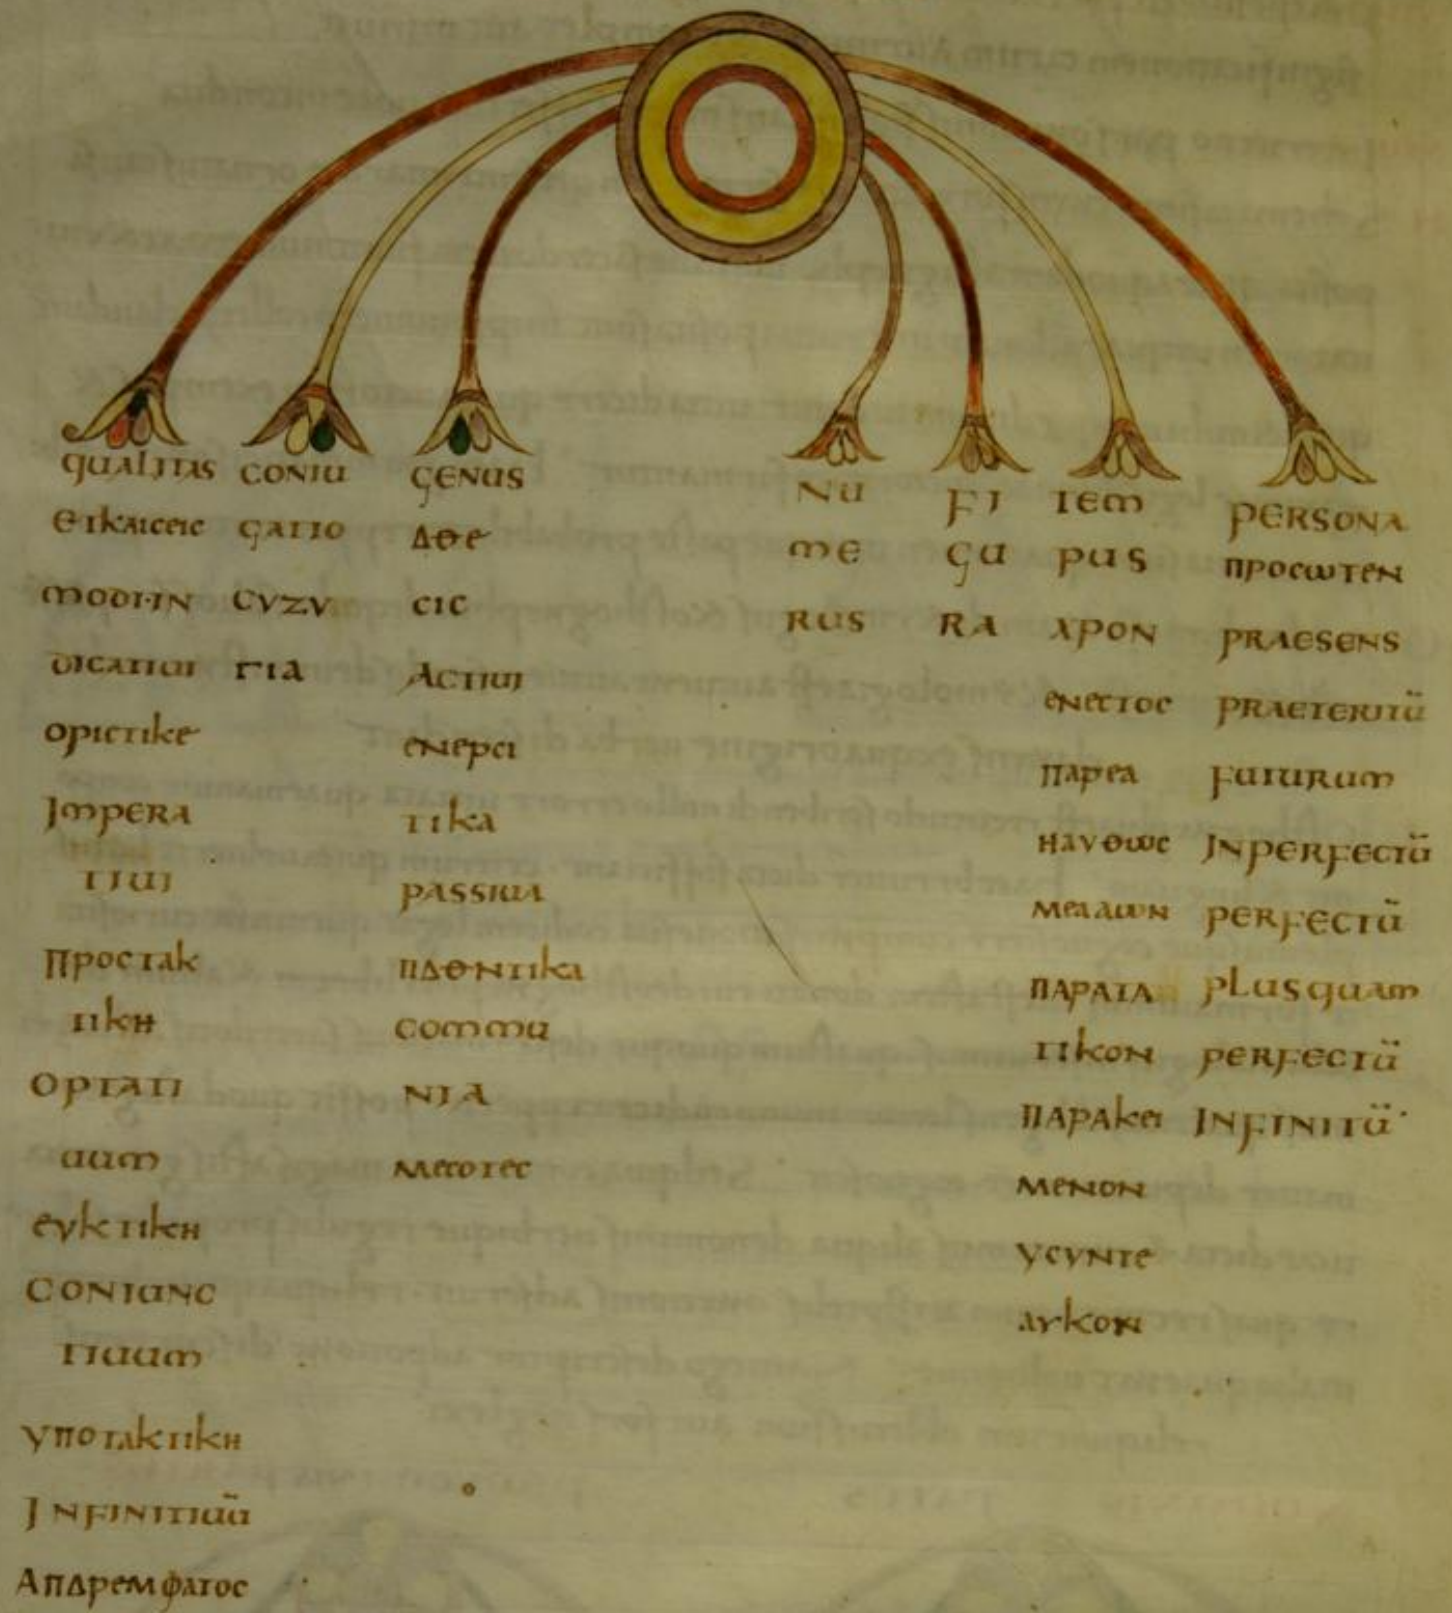 QUALITAS
ΕΙΚΑΙCΕΙC
MODI·IN
DICATIUI
ΟΡΙCΤΙΚΕ
IMPERA
TIUI
ΠΡΟCΤΑΚ
ΤΙΚΗ
OPTATI
UUM
ΕΥΚΤΙΚΗ
CONIUNC
TIUUM
ΥΠΟΤΑΚΤΙΚΗ
INFINITIUŪ
ΑΠΔΡΕΜΦΑΤΟC
CONIU
GATIO
CΥΖΥ
ΓΙΑ
GENUS
ΔΘΕ
CIC
ACTIUI
ΕΝΕΡCΙ
ΤΙΚΑ
PASSIUA
ΠΔΘΝΤΙΚΑ
COMMU
NIA
ΜΕCΟΤΕC
NU
ME
RUS
FI
GU
RA
TEM
PUS
ΧΡΟΝ
ΕΝΕCΤΟC
ΠΑΡΕΑ
ΗΛΥΘΩC
ΜΕΛΛΩΝ
ΠΑΡΑΤΑ
ΤΙΚΟΝ
ΠΑΡΑΚΕΙ
ΜΕΝΟΝ
ΥCΥΝΤΕ
ΛΥΚΟΝ
PERSONA
ΠΡΟCΩΤΕΝ
PRAESENS
PRAETERITŪ
FUTURUM
INPERFECTŪ
PERFECTŪ
PLUSQUAM
PERFECTŪ
INFINITŪ·